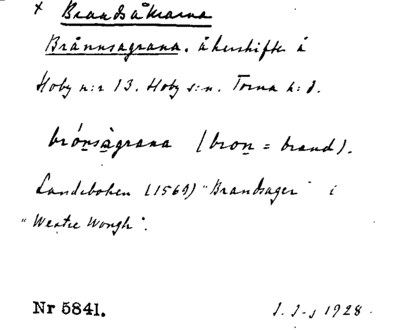 x Brandsåkrarna
Brånnsagrana. åkerskifte å
Hoby n:r 13. Hoby s:n. Torna h:d.
brónsàgrana (bron = brand).
Landeboken (1569) "Brandsager" i
"Westre Wongh".
Nr 5841. 1928.